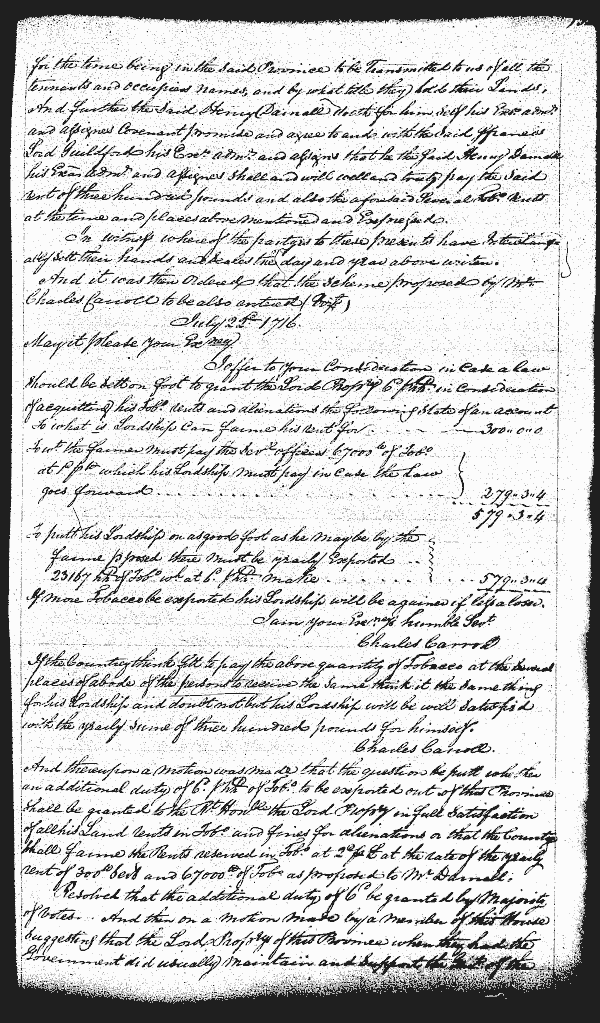 for the time being in the said Province to be Transmitted to us of all the
tennants and occupiers names, and by what title they hold their Lands;
And further the said Henry Darnall doth for him self his Exrs admrs
and assignes Covenant promise and agree to and with the said ffrancis
Lord Guildford his Exrs admrs and assigns that he the said Henry Darnall
his Exrs admrs and assignes shall and will well and truely pay the said
rent of three hundred pounds and also the aforesaid several Tobo rents
at the time and places above mentioned and Expressed.
In witness whereof the partyes to these presents have Interchange
ably sett their hands and seales the day and year above writen.
And it was then Ordered that the scheme proposed by Mr
Charles Carroll to be also entered
July 22d 1716.
May it please your Exncy
I offer to your Consideration in Case a law
should be sett on foot to grant the Lord Propry 6d p hhd in Consideration
of acquitting his Tobo rents and alienations the following State of an account
To what is Lordship Can farme his rent for . . . . 300..0..0
To wt the farmer must pay the sevl officers 67000 lb of Tobo
at 1d p lb which his Lordship must pay in Case the Law
goes forward . . . . . . . . . . . . 279..3..4
579..3..4
To putt his Lordship on as good foot as he may be by the
farme pposed there must be yearly Exported . . .
23167 hhds of Tobo wt at 6d p hhd make . . . . . . 579..3..4
If more Tobacco be exported his Lordship will be a gainer if less a loser.
I am your Excys humble Servt
Charles Carroll
If the Country think fitt to pay the above quantity of Tobacco at the several
places of abode of the persons to receive the same think it the same thing
for his Lordship and doubt not but his Lordship will be well Satisfied
with the yearly sume of three hundred pounds for himself.
Charles Carroll.
And thereupon a motion was made that the question be putt whether
an additional duty of 6d p hhd of Tobo to be exported out of this Province
shall be granted to the Rt Honble the Lord Propry in full Satisfaction
of all his Land rents in Tobo and fines for alienations or that the Country
shall farme the Rents reserved in Tobo at 2d p lb at the rate of the yearly
rent of 300 lb Ster and 67000 lb of Tobo as proposed to Mr Darnall;
Resolved that the additional duty of 6d be granted by Majority
of Votes. And then on a motion made by a member of this House
Suggesting that the Lord Propry of this Province when they had the
Government did usually maintain and support the of the